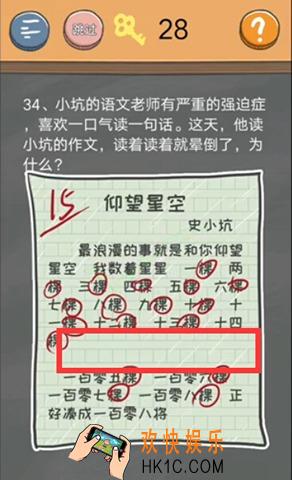 跳过
28
?
34、小坑的语文老师有严重的强迫症
，喜欢一口气读一句话。这天，他读
小坑的作文，读着读着就晕倒了，为
什么？
15
仰望星空
史小坑
最浪漫的事就是和你仰望
星空 我数着星星 一棵 两
棵 三棵 四棵 五棵 六棵
七棵 八棵 九棵 十棵 十
一棵 十二棵 十三棵 十四
棵
一百零五棵 一百零六棵
一百零七棵 一百零八棵 正
好凑成一百零八将
欢快娱乐
HK1C.COM